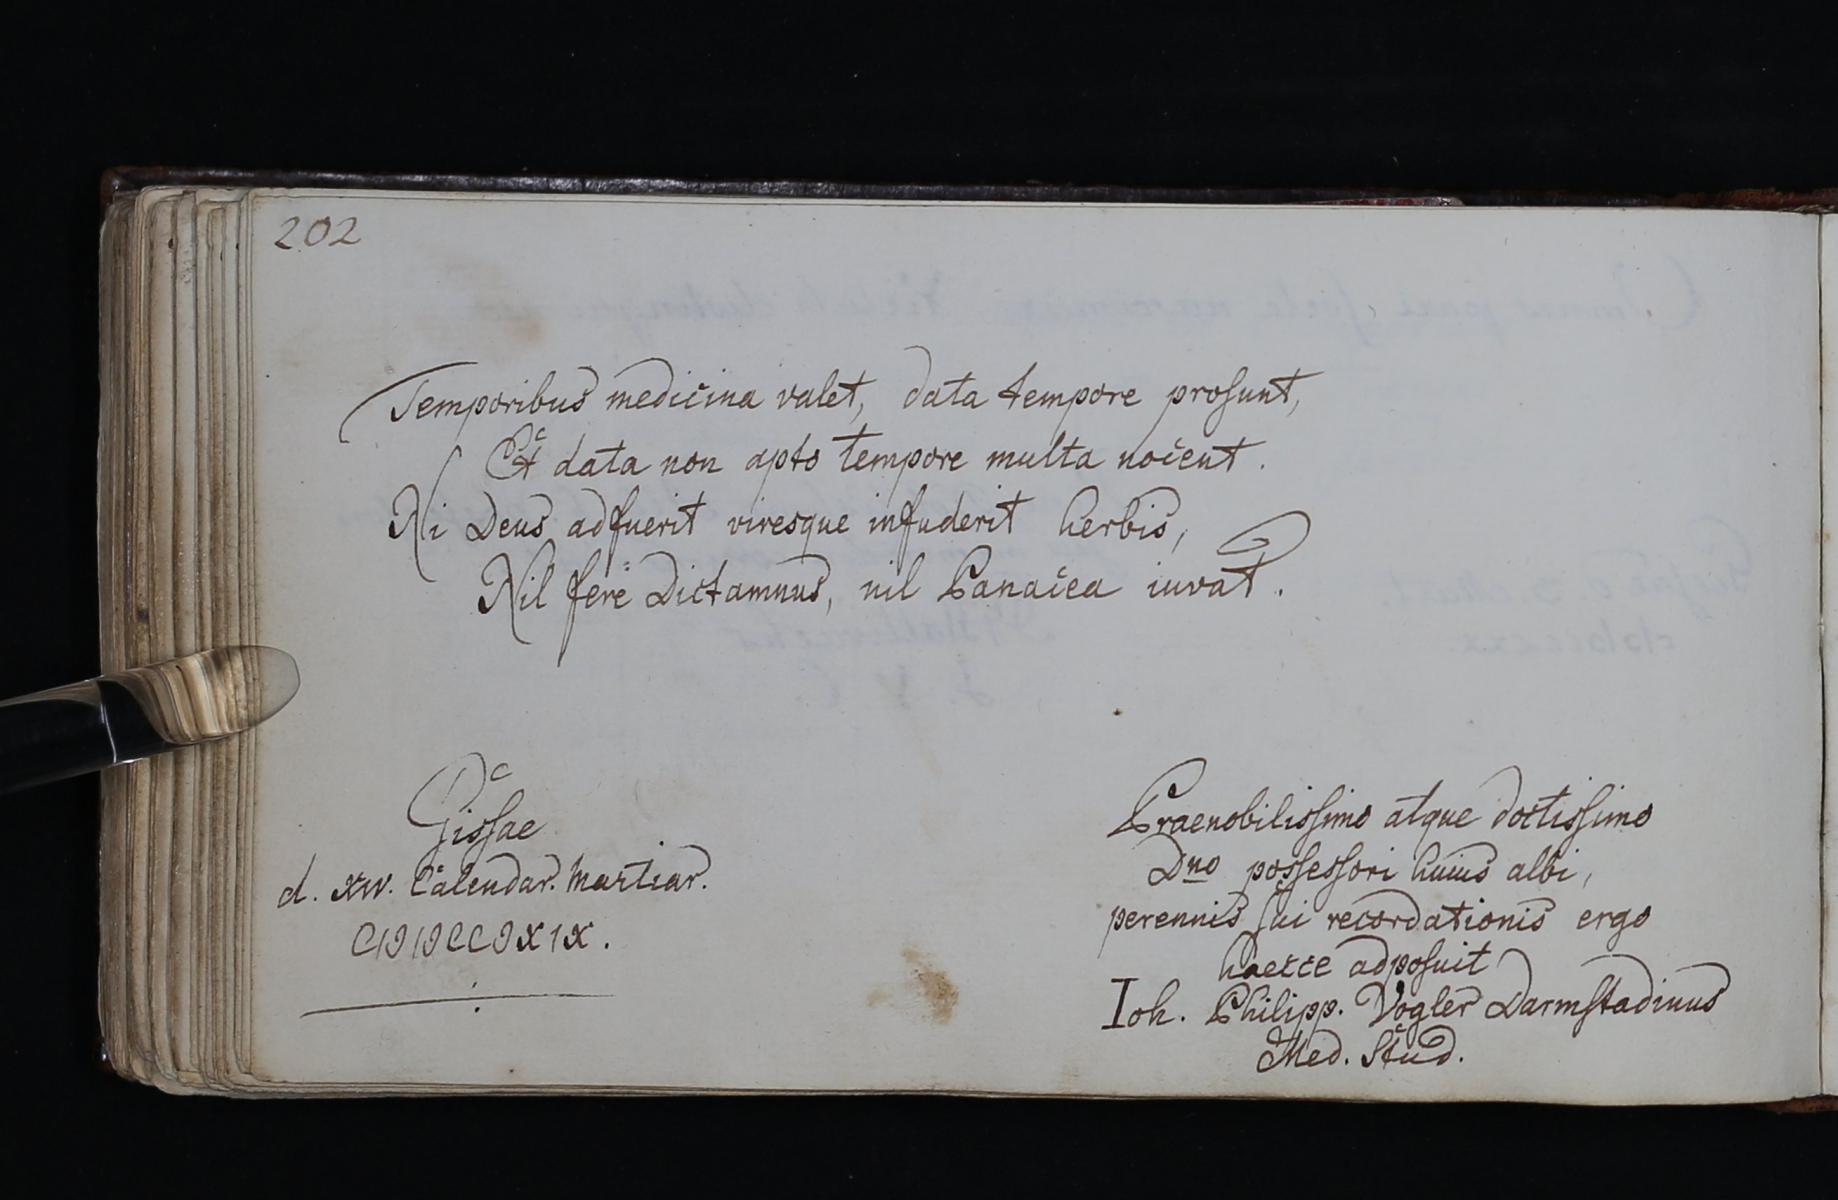 202
Temporibus medicina valet, data tempore prosunt,
Et data non apto tempore multa nocent.
Ni Deus adfuerit viresque infuderit herbis,
Nil fere Dictamnus, nil Panacea iuvat.
Gissae
d. XIV. Calendar. Martiar.
CIƆIƆCCIXX.
Praenobilissimo atque doctissimo
Dno possessori huius albi,
perennis sui recordationis ergo
haecce adposuit
Ioh. Philipp. Vogler Darmstadinus
Med. Stud.